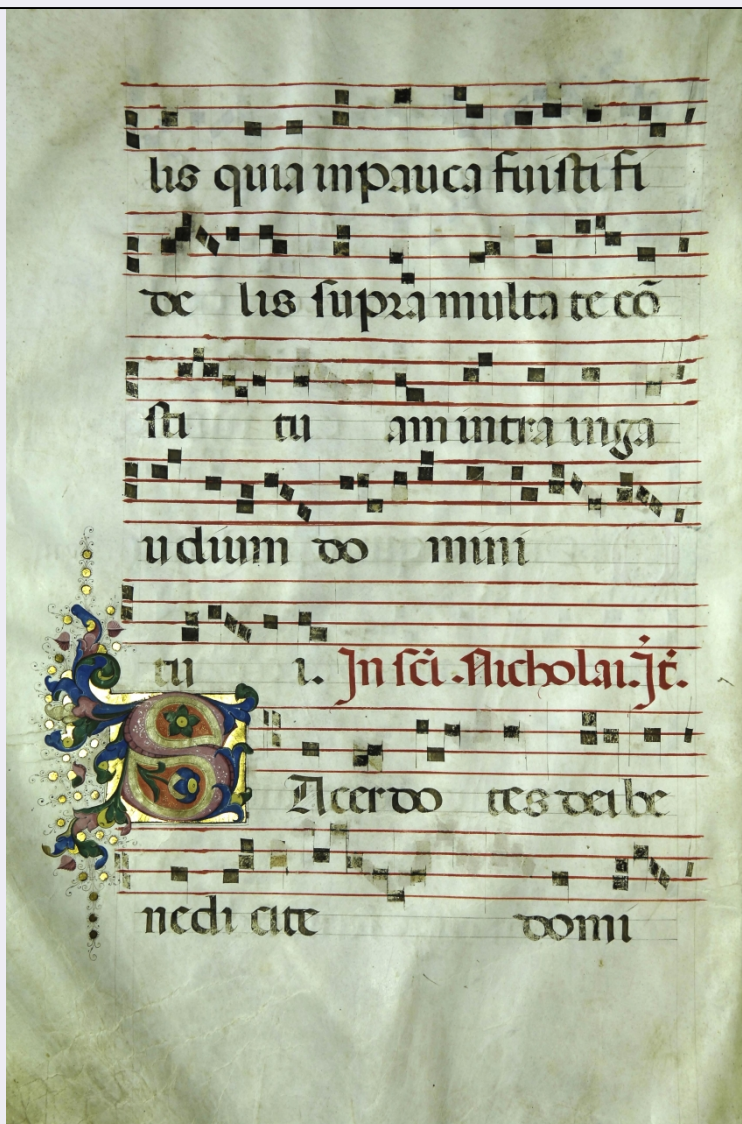 lis quia in pauca fuisti fi
de lis supra multa te cõ
sti tu am intra in ga
udium do mini
tu i. In sc̃i. Nicholai. Jt̃.
SAcerdo tes dei be
nedi cite domi